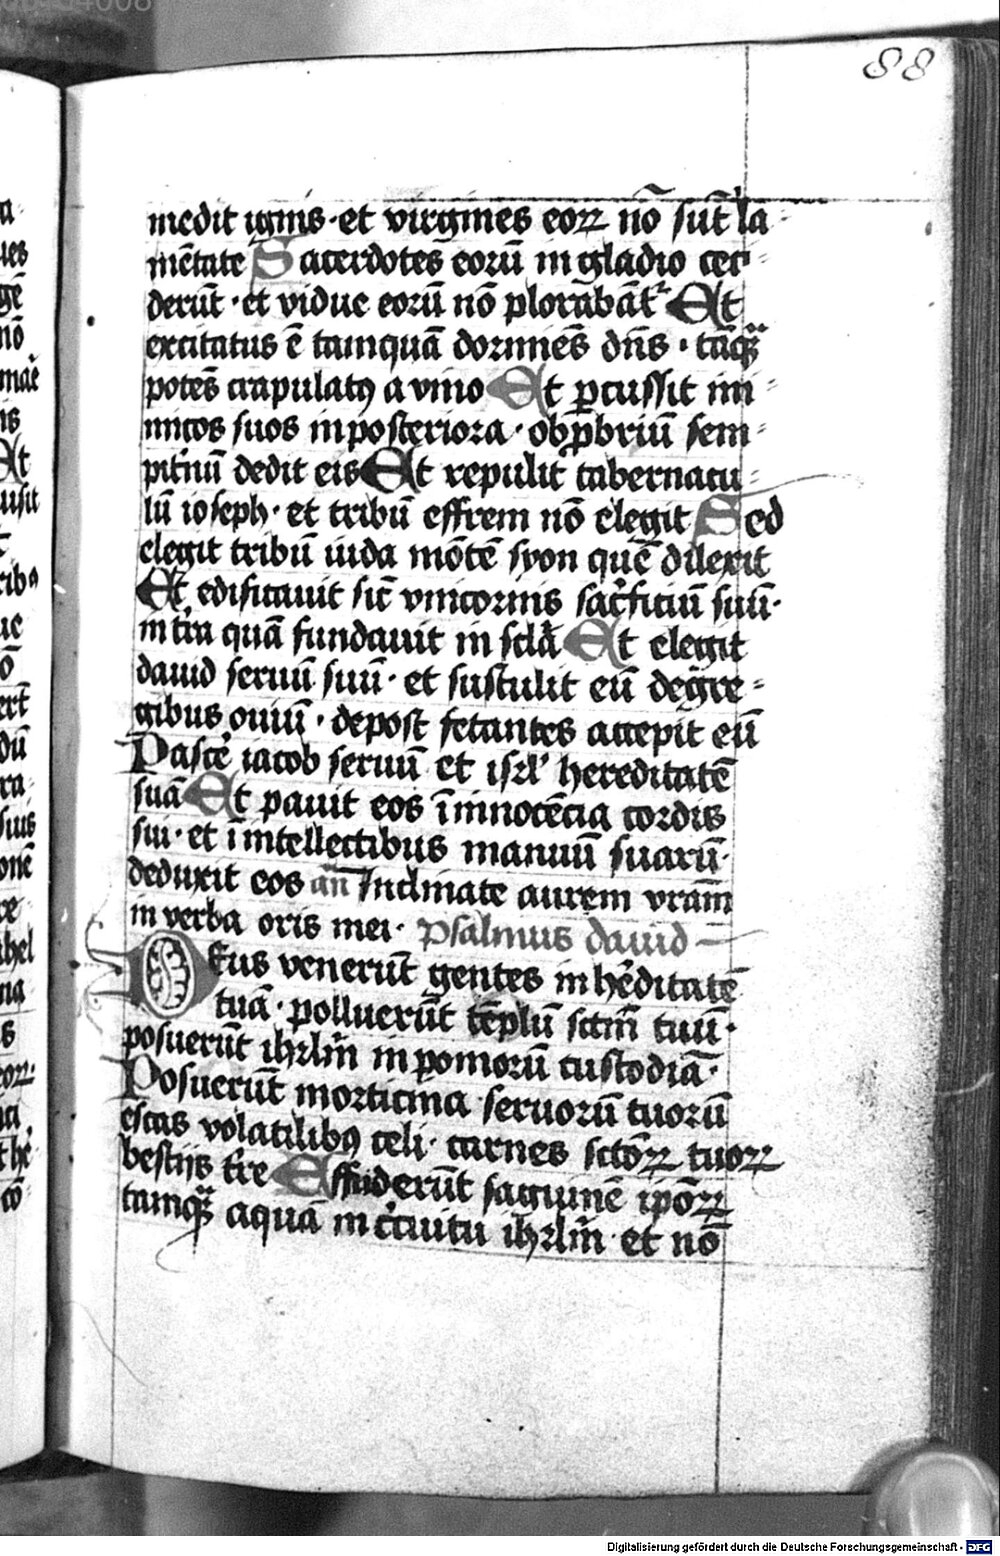 88
medit ignis · et virgines eoꝝ nō sūt la
mētate Sacerdotes eorū in gladio ceci
derūt · et vidue eorū nō plorabātʳ Et
excitatus ē tamquā dormiēs dn̄s · tāqᷓ
potēs crapulatꝯ a vino Et ꝑcussit ini
micos suos in posteriora · obꝓbriū sem
pit̓nū dedit eis Et repulit tabernacu
lū ioseph · et tribū effrem nō elegit Sed
elegit tribū iuda mōtē syon quē dilexit
Et edificauit sic̄ vnicornis sac̓ficiū suū ·
in t̓ra quā fundauit in scl̓a Et elegit
dauid seruū suū · et sustulit eū de gre
gibus ouiū · de post fetantes accepit eū
Pasce̓ iacob seruū et isrl̓ hereditatē
suā Et pauit eos ī innocēcia cordis
sui · et ī intellectibus manuū suarū ·
deduxit eos an̄ Inclinate aurem vram̄
in verba oris mei · psalmus dauid
Deus venerūt gentes in he̓ditatē
tuā · polluerūt tēplū scm̄ tuū ·
posuerūt ihrlm̄ in pomorū custodiā ·
Posuerūt morticina seruorū tuorū
escas volatilibꝯ celi · carnes sctōꝝ tuoꝝ
bestijs tr̄e Effuderūt sāguinē ipōꝝ
tamqᷓ aquā in cc̓uitu ihrlm̄ et nō
Digitalisierung gefördert durch die Deutsche Forschungsgemeinschaft · DFG